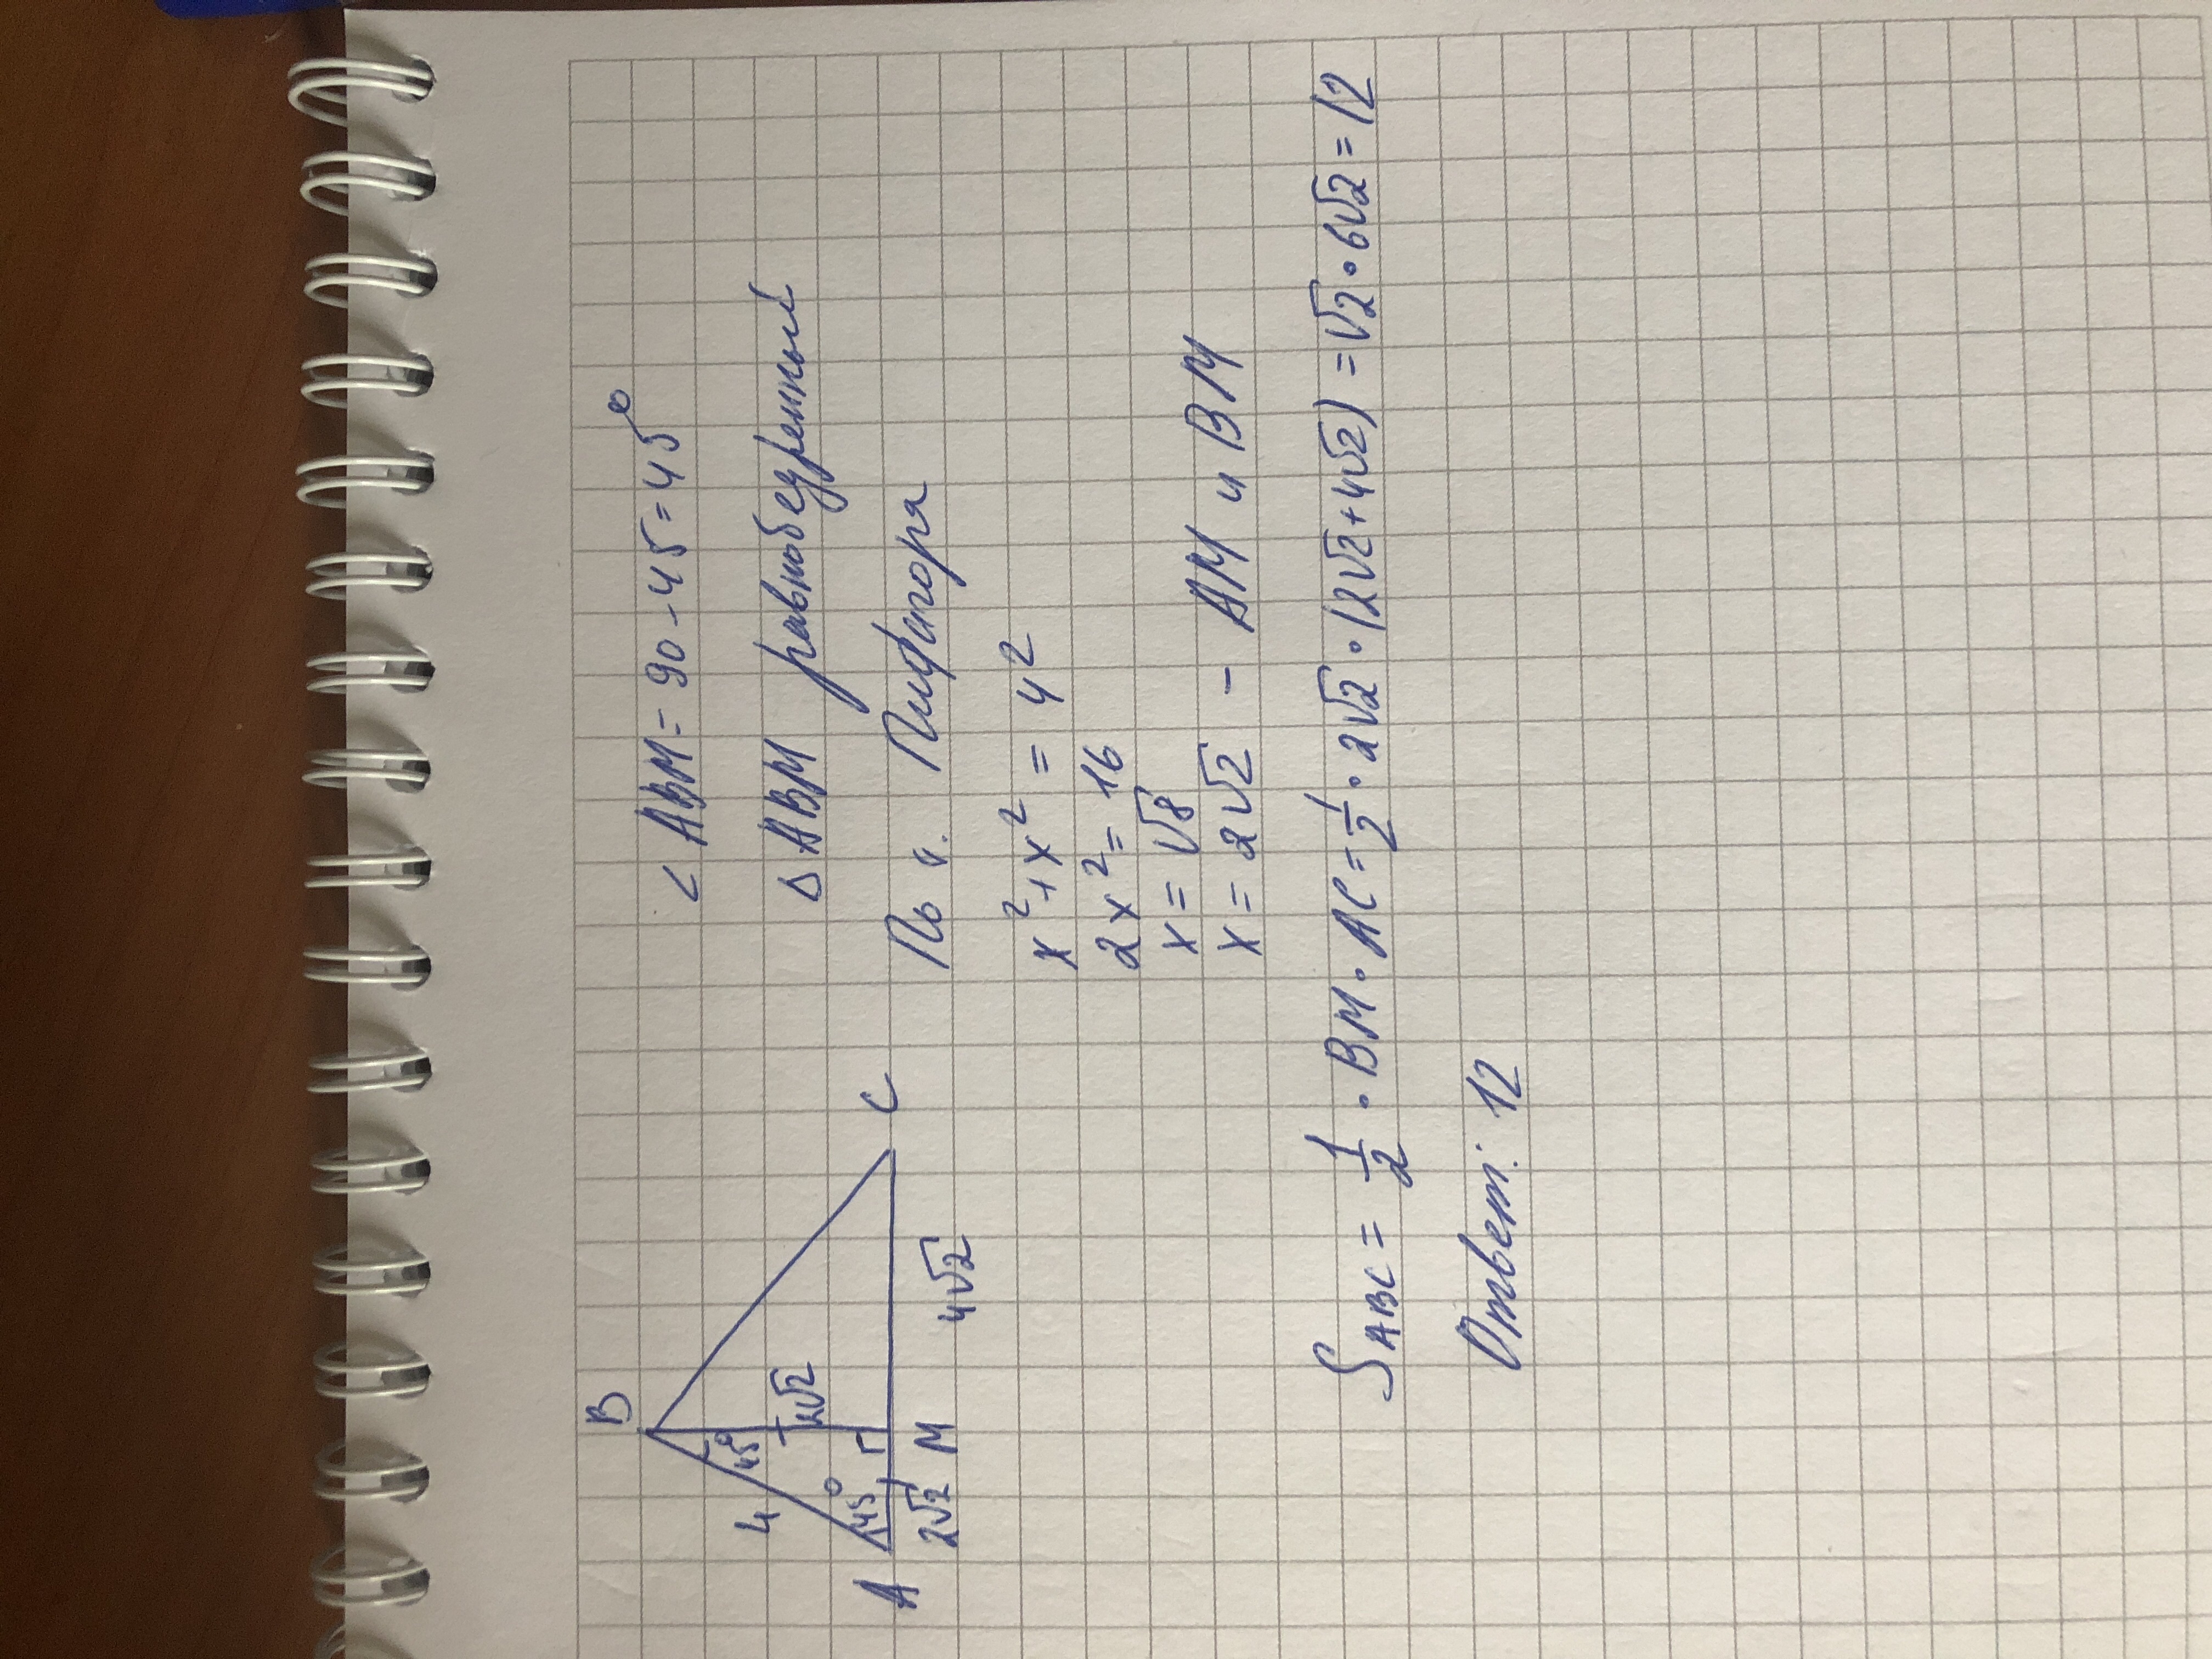 B
4
45°
2√2
45°
A
2√2
M
4√2
C
∠ABM = 90 - 45 = 45°
△ABM равнобедренный
По т. Пифагора
x² + x² = 4²
2x² = 16
x = √8
x = 2√2 - AM и BM
S ABC = 1/2 · BM · AC = 1/2 · 2√2 · (2√2 + 4√2) = √2 · 6√2 = 12
Ответ: 12